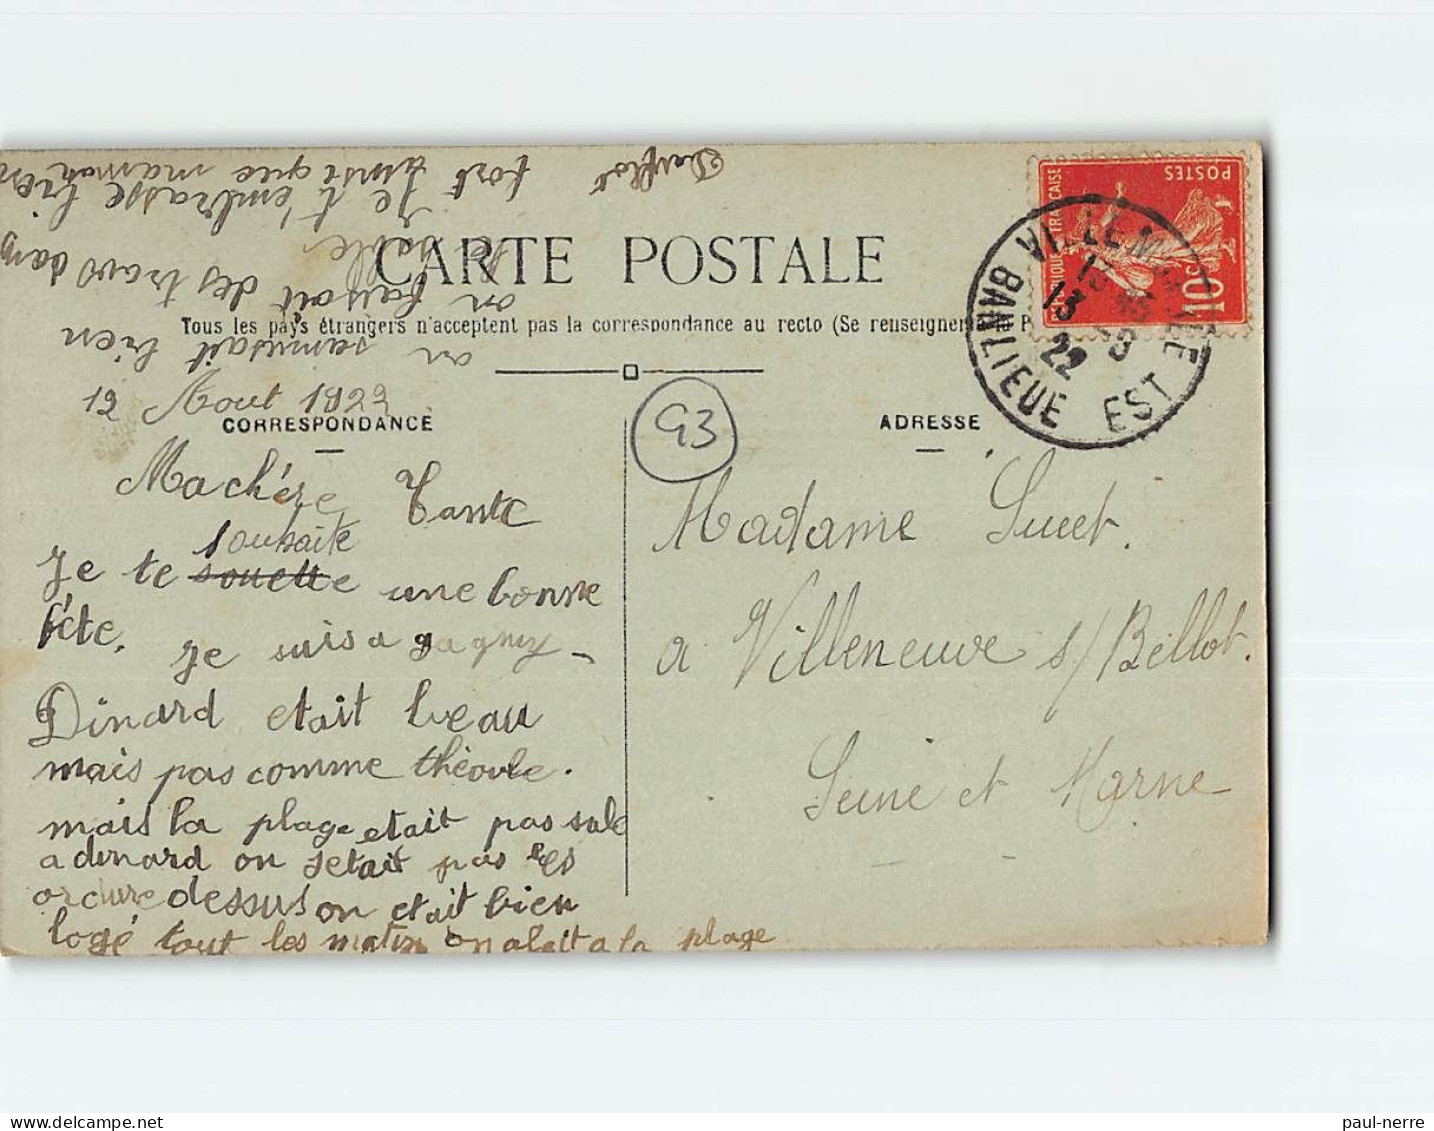 CARTE POSTALE
Tous les pays étrangers n'acceptent pas la correspondance au recto (Se renseigner
CORRESPONDANCE
ADRESSE
12 Aout 1922
G3
Machére Tante
souhaite
Je te souette une bonne
féte. Je suis a gagny
Dinard etait beau
mais pas comme théoule.
mais la plage etait pas sale
a dinard on setait pas les
ordure dessus on etait bien
logé tout les matin on alait a la plage
on samusait bien
on faisait des travo dans
le sable
Je t'embrasse bien
fort ainsi que maman
Madame Sucet.
a Villeneuve s/ Bellot.
Seine et Marne
POSTES
REPUBLIQUE FRANÇAISE
10c
VILLEMOMBLE
VIA BANLIEUE EST
13 -9
22
paul-nerre